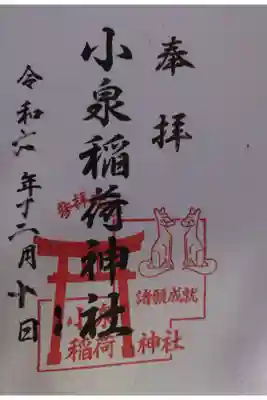 奉拝
小泉稲荷神社
令和六年十二月十日
諸願成就
小泉
稲荷神社